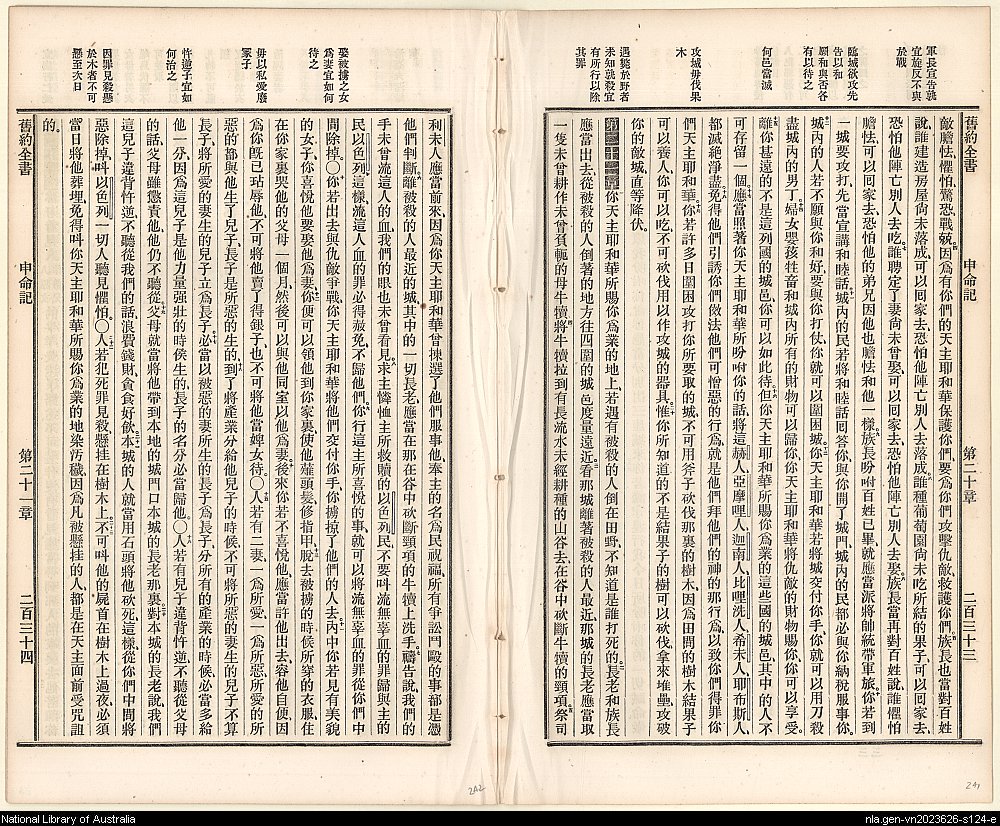 舊約全書 申命記 第二十章 二百三十三
軍長宣告孰
宜旋反不與
於戰
臨城欲攻先
告以和
願和與否各
有以待之
何邑當滅
攻城毋伐果
木
遇斃於野者
未知孰殺宜
有所行以除
其罪
敵膽怯懼怕驚恐戰兢因為有你們的天主耶和華保護你們要為你們攻擊仇敵救護你們族長也當對百姓
說誰建造房屋尚未落成可以回家去恐怕他陣亡別人去落成誰種葡萄園尚未吃所結的果子可以回家去
恐怕他陣亡別人去吃誰聘定了妻尚未曾娶可以回家去恐怕他陣亡別人去娶族長當再對百姓說誰懼怕
膽怯可以回家去恐怕他的弟兄因他也膽怯和他一樣族長吩咐百姓已畢就應當派將帥統帶軍旅你若到
一城要攻打先當宣講和睦話城內的民若將和睦話回答你與你開了城門城內的民都必與你納稅服事你
城內的人若不願與你和好要與你打仗你就可以圍困城你天主耶和華若將城交付你手你就可以用刀殺
盡城內的男丁婦女嬰孩牲畜和城內所有的財物可以歸你你天主耶和華將仇敵的財物賜你你可以享受
離你甚遠的不是這列國的城邑你可以如此待但你天主耶和華所賜你為業的這些國的城邑其中的人不
可存留一個應當照著你天主耶和華所吩咐你的話將這赫人亞摩哩人迦南人比哩洗人希未人耶布斯人
都滅絕淨盡免得他們引誘你們做法他們可憎惡的行為就是他們拜他們的神的那行為以致你們得罪你
們天主耶和華你若許多日圍困攻打你所要取的城不可用斧子砍伐那裏的樹木因為田間的樹木結果子
可以養人你可以吃不可砍伐用以作攻城的器具惟你所知道的不是結果子的樹可以砍伐拿來堆壘攻破
你的敵城直等降伏
第二十一章你天主耶和華所賜你為業的地上若遇有被殺的人倒在田野不知道是誰打死的長老和族長
應當出去從被殺的人倒著的地方往四圍的城邑度量遠近看那城離著被殺的人最近那城的長老應當取
一隻未曾耕作未曾負軛的母牛犢將牛犢拉到有長流水未經耕種的山谷去在谷中砍斷牛犢的頸項祭司
娶被擄之女
為妻宜如何
待之
毋以私愛廢
冢子
忤逆子宜如
何治之
因罪見殺懸
於木者不可
懸至次日
利未人應當前來因為你天主耶和華曾揀選了他們服事他奉主的名為民祝福所有爭訟鬥毆的事都是憑
他們判斷離被殺的人最近的城其中的一切長老應當在那在谷中砍斷頸項的牛犢上洗手禱告說我們的
手未曾流這人的血我們的眼也未曾看見求主憐恤主所救贖的以色列民不要叫流無辜血的罪歸與主的
民以色列這樣流這人血的罪必得赦免不歸他們你行這主所喜悅的事就可以將流無辜血的罪從你們中
間除掉○你若出去與仇敵爭戰你天主耶和華將他們交付你手你擄掠了他們的人去內中你若見有美貌
的女子你喜悅他要娶他為妻你便可以領他到你家裏使他薙頭髮修指甲脫去被擄的時候所穿的衣服住
在你家裏哭他的父母一個月然後可以與他同室以他為妻後來你若不喜悅他應當許他出去容他自便因
為你既已玷辱他不可將他賣了得銀子也不可將他當婢女待○人若有二妻一為所愛一為所惡所愛的所
惡的都與他生了兒子長子是所惡的生的到了將產業分給他兒子的時候不可將所惡的妻生的兒子不算
長子將所愛的妻生的兒子立為長子必當以被惡的妻所生的長子為長子分所有的產業的時候必當多給
他一分因為這兒子是他力量強壯的時候生的長子的名分必當歸他○人若有兒子違背忤逆不聽從父母
的話父母雖懲責他他仍不聽從父母就當將他帶到本地的城門口本城的長老那裏對本城的長老說我們
這兒子違背忤逆不聽從我們的話浪費錢財貪食好飲本城的人就當用石頭將他砍死這樣從你們中間將
惡除掉叫以色列一切人聽見懼怕○人若犯死罪見殺懸挂在樹木上不可叫他的屍首在樹木上過夜必須
當日將他葬埋免得叫你天主耶和華所賜你為業的地染污穢因為凡被懸挂的人都是在天主面前受咒詛
的
舊約全書 申命記 第二十一章 二百三十四
242
241
National Library of Australia
nla.gen-vn2023626-s124-e